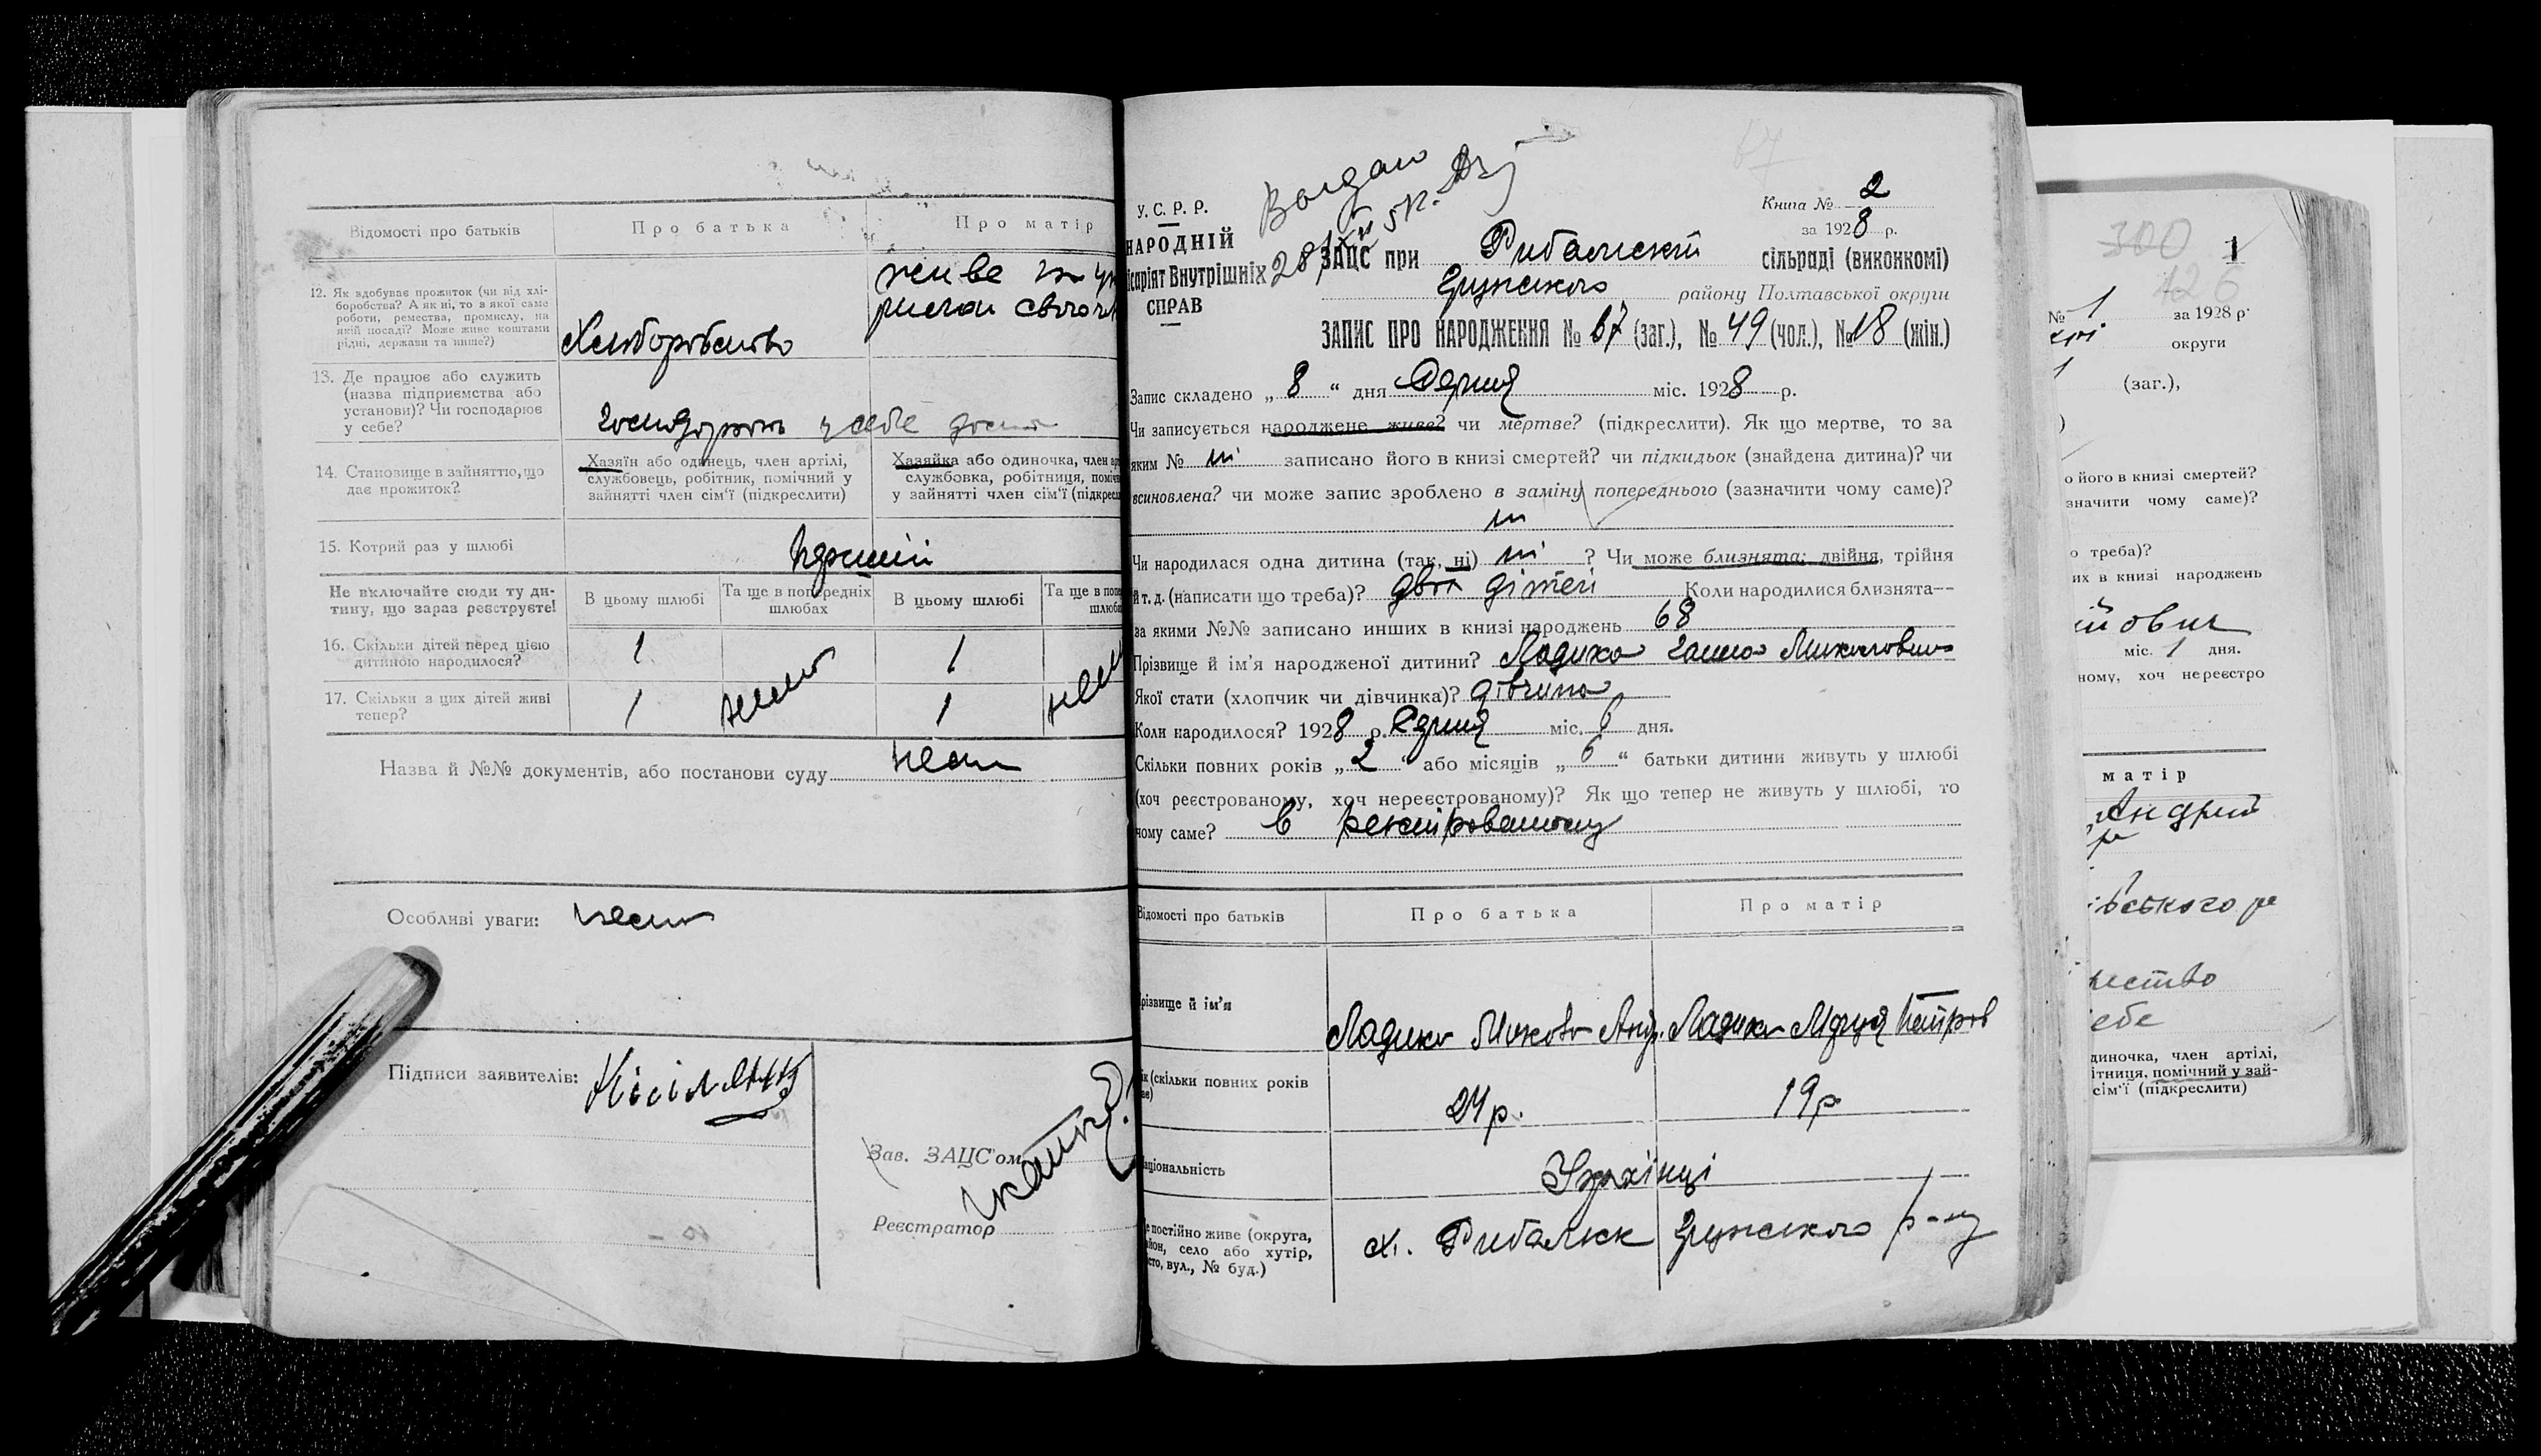 Відомості про батьків
Про батька
Про матір
12. Як здобуває прожиток (чи від хлі-
боробства? А як ні, то з якої саме
роботи, ремества, промислу, на
якій посаді? Може живе коштами
рідні, держави та инше?)
Хліборобство
живе на
13. Де працює або служить
(назва підприємства або
установи)? Чи господарює
у себе?
у себе
14. Становище в зайняттю, що
дає прожиток?
Хазяїн або одинець, член артілі,
службовець, робітник, помічний у
зайнятті член сім'ї (підкреслити)
Хазяйка або одиночка, член
службовка, робітниця,
у зайнятті член сім'ї
15. Котрий раз у шлюбі
перший
Не включайте сюди ту ди-
тину, що зараз реєструєте!
В цьому шлюбі
Та ще в попередніх
шлюбах
В цьому шлюбі
Та ще в
16. Скільки дітей перед цією
дитиною народилося?
1
1
17. Скільки з цих дітей живі
тепер?
1
нема
1
Назва й №№ документів, або постанови суду нема
Особливі уваги: нема
Підписи заявителів:
Зав. ЗАЦС'ом
Реєстратор
У. С. Р. Р.
НАРОДНІЙ
Внутрішніх
СПРАВ
Книга № 2
за 1928 р.
ЗАЦС при Рибальскій сільраді (виконкомі)
району Полтавської округи
ЗАПИС ПРО НАРОДЖЕННЯ № 67 (заг.), № 49 (чол.), № 18 (жін.)
Запис складено „ 8 “ дня Серпня міс. 1928 р.
Чи записується народжене живе? чи мертве? (підкреслити). Як що мертве, то за
яким № ні записано його в книзі смертей? чи підкидьок (знайдена дитина)? чи
всиновлена? чи може запис зроблено в заміну попереднього (зазначити чому саме)?
ні
Чи народилася одна дитина (так, ні) ні ? Чи може близнята: двійня, трійня
й т. д. (написати що треба)? двоє дітей Коли народилися близнята—
за якими №№ записано инших в книзі народжень 68
Прізвище й ім'я народженої дитини? Ладика Ганна Миколовна
Якої стати (хлопчик чи дівчинка)? дівчина
Коли народилося? 1928 р. Серпня міс. 6 дня.
Скільки повних років „ 2 “ або місяців „ 6 “ батьки дитини живуть у шлюбі
(хоч реєстрованому, хоч нереєстрованому)? Як що тепер не живуть у шлюбі, то
чому саме? в
Відомості про батьків
Про батька
Про матір
Прізвище й ім'я
Ладика Микола Анд.
Ладика Марія Петров
(скільки повних років
24 р.
19 р
Національність
Українці
постійно живе (округа,
район, село або хутір,
місто, вул., № буд.)
х. Рибальск р-ну
300
126
1
№ 1 за 1928 р.
округи
1 (заг.),
)
о його в книзі смертей?
значити чому саме)?
о треба)?
их в книзі народжень
міс. 1 дня.
ному, хоч нереєстро
матір
Андрій
ського
ебе
диночка, член артілі,
ітниця, помічний у зай-
сім'ї (підкреслити)